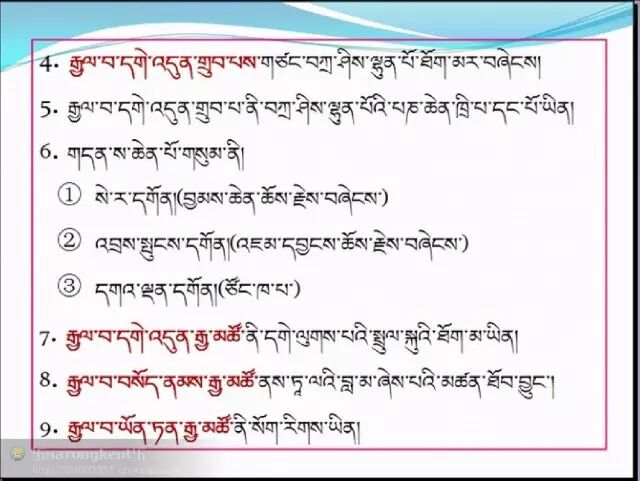 4. རྒྱལ་བ་དགེ་འདུན་གྲུབ་པས་གཙང་བཀྲ་ཤིས་ལྷུན་པོ་ཐོག་མར་བཞེངས།
5. རྒྱལ་བ་དགེ་འདུན་གྲུབ་པ་ནི་བཀྲ་ཤིས་ལྷུན་པོའི་པཎ་ཆེན་ཁྲི་པ་དང་པོ་ཡིན།
6. གདན་ས་ཆེན་པོ་གསུམ་ནི།
① སེ་ར་དགོན།(བྱམས་ཆེན་ཆོས་རྗེས་བཞེངས་)
② འབྲས་སྤུངས་དགོན།(འཇམ་དབྱངས་ཆོས་རྗེས་བཞེངས་)
③ དགའ་ལྡན་དགོན།(ཙོང་ཁ་པ་)
7. རྒྱལ་བ་དགེ་འདུན་རྒྱ་མཚོ་ནི་དགེ་ལུགས་པའི་སྤྲུལ་སྐུའི་ཐོག་མ་ཡིན།
8. རྒྱལ་བ་བསོད་ནམས་རྒྱ་མཚོ་ནས་ཏཱ་ལའི་བླ་མ་ཞེས་པའི་མཚན་ཐོབ་བྱུང་།
9. རྒྱལ་བ་ཡོན་ཏན་རྒྱ་མཚོ་ནི་སོག་རིགས་ཡིན།